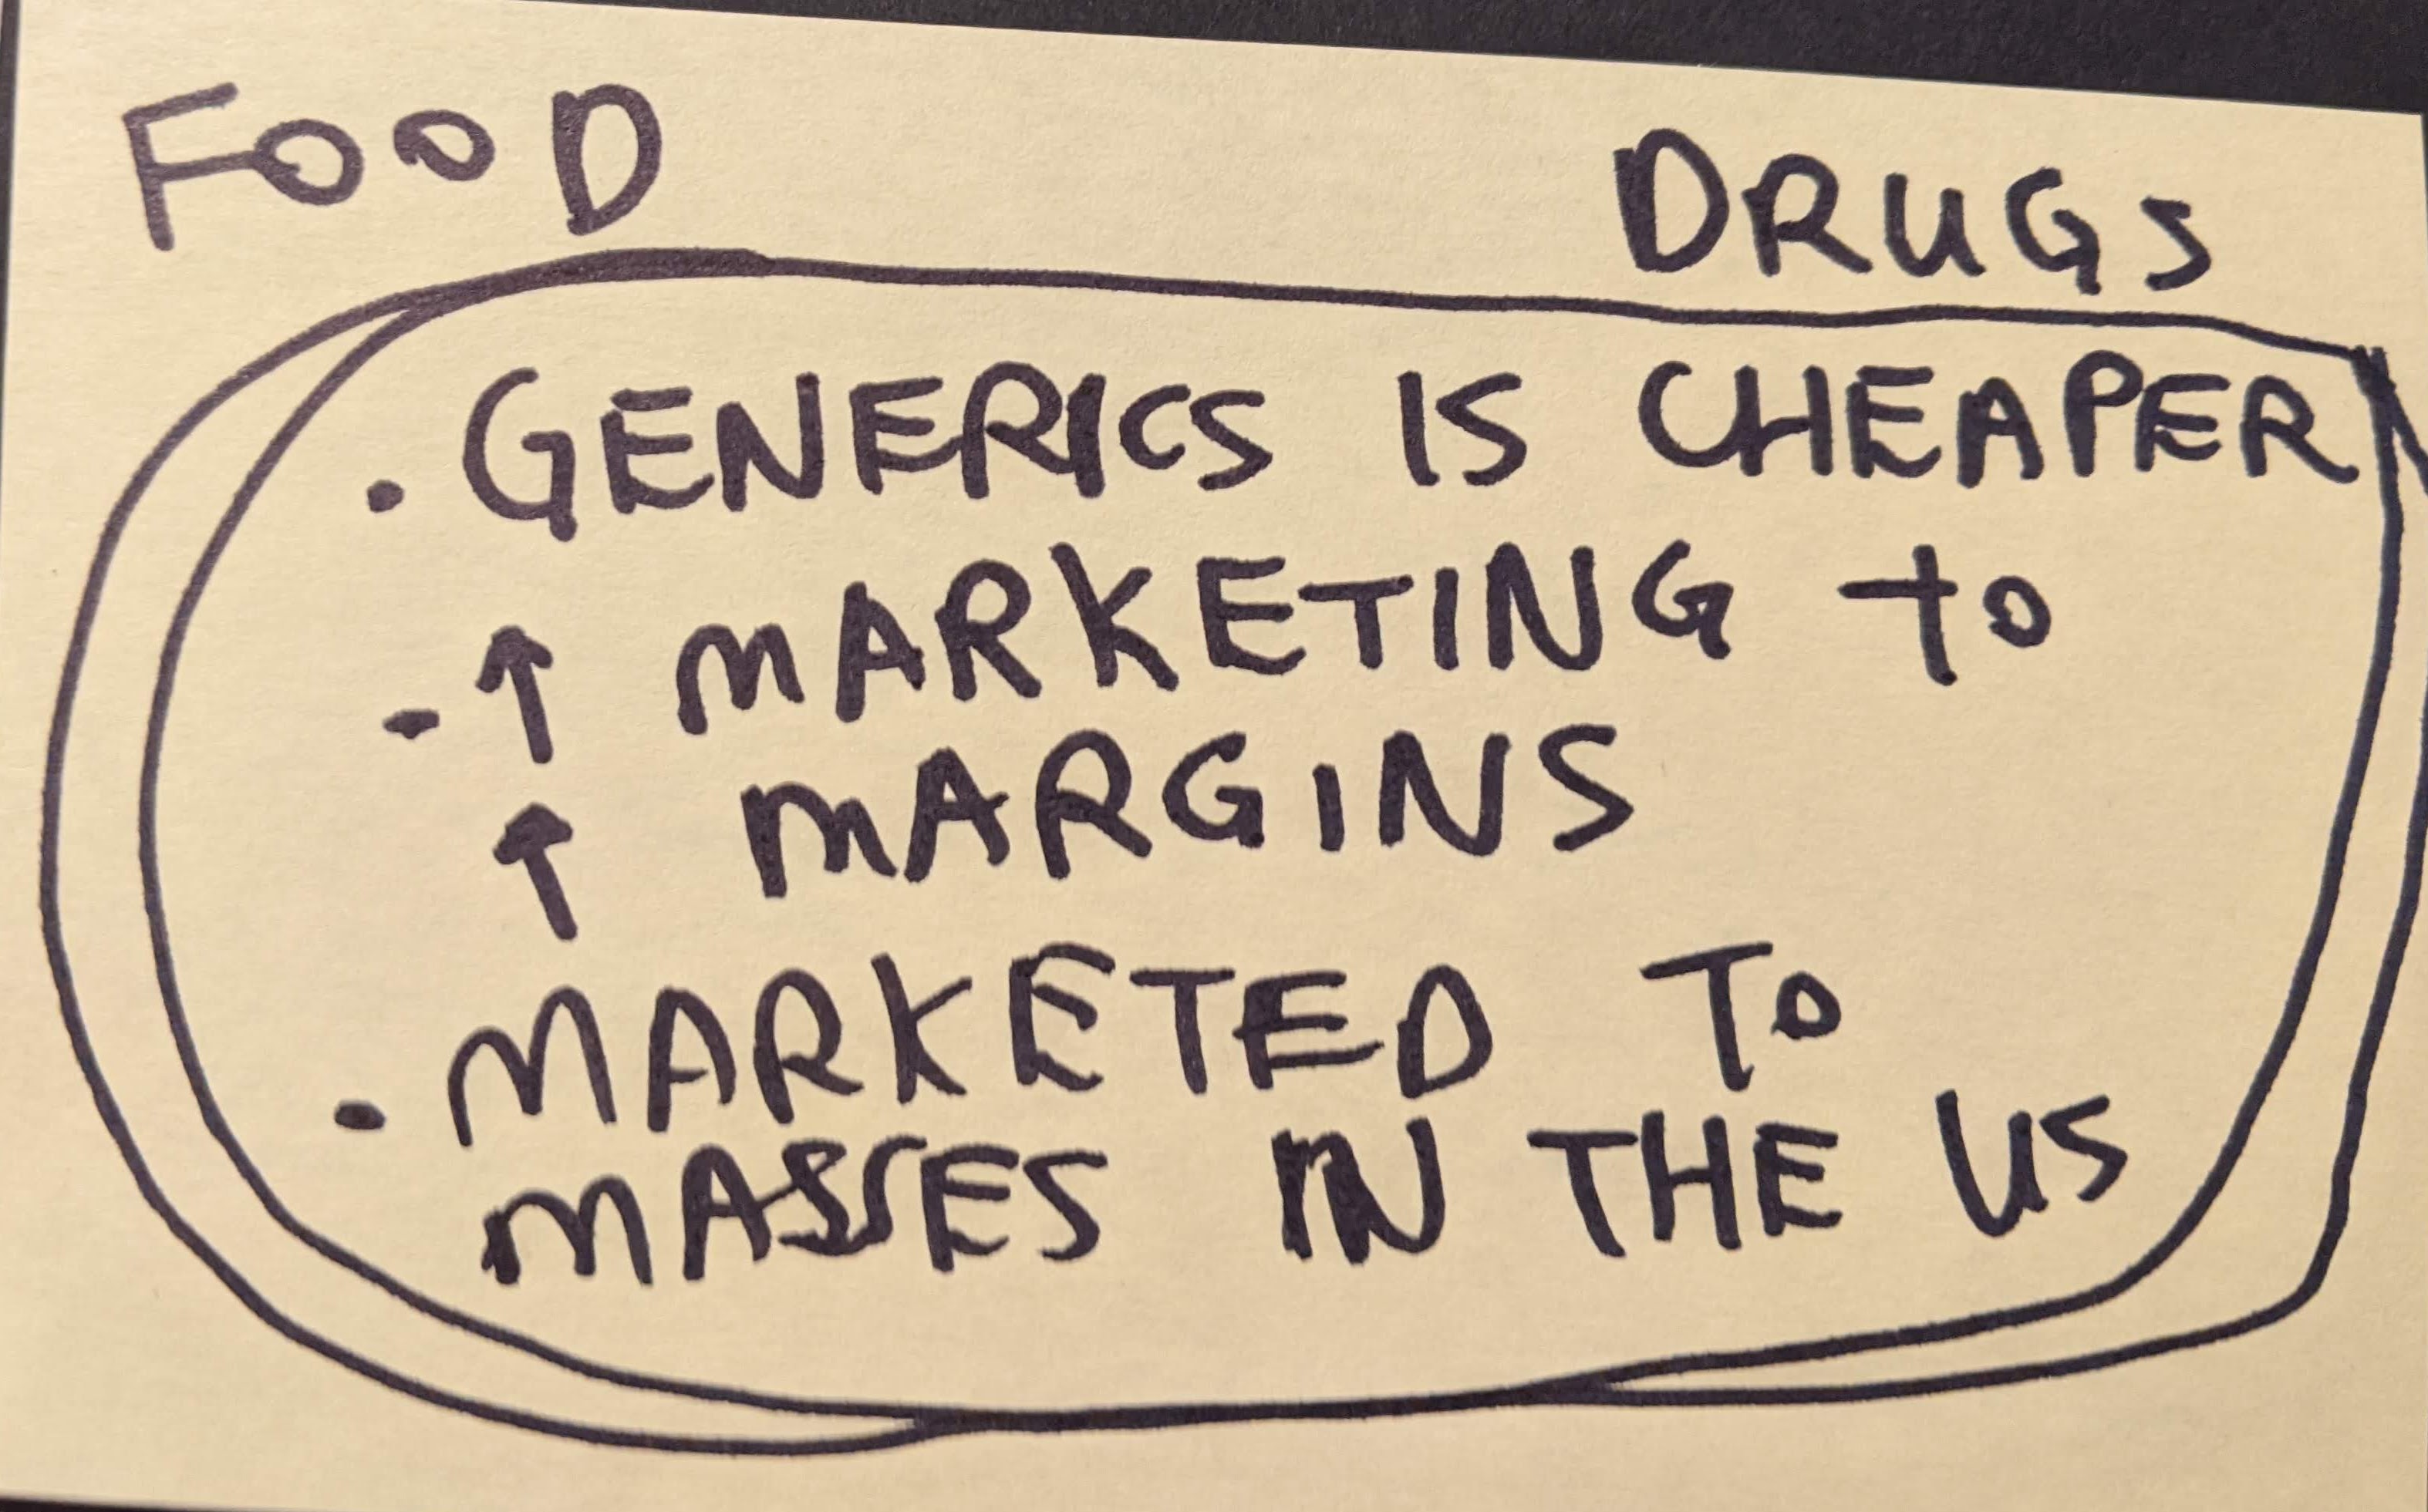 FOOD DRUGS
. GENERICS IS CHEAPER
- ↑ MARKETING to
↑ MARGINS
. MARKETED To
MASSES IN THE US